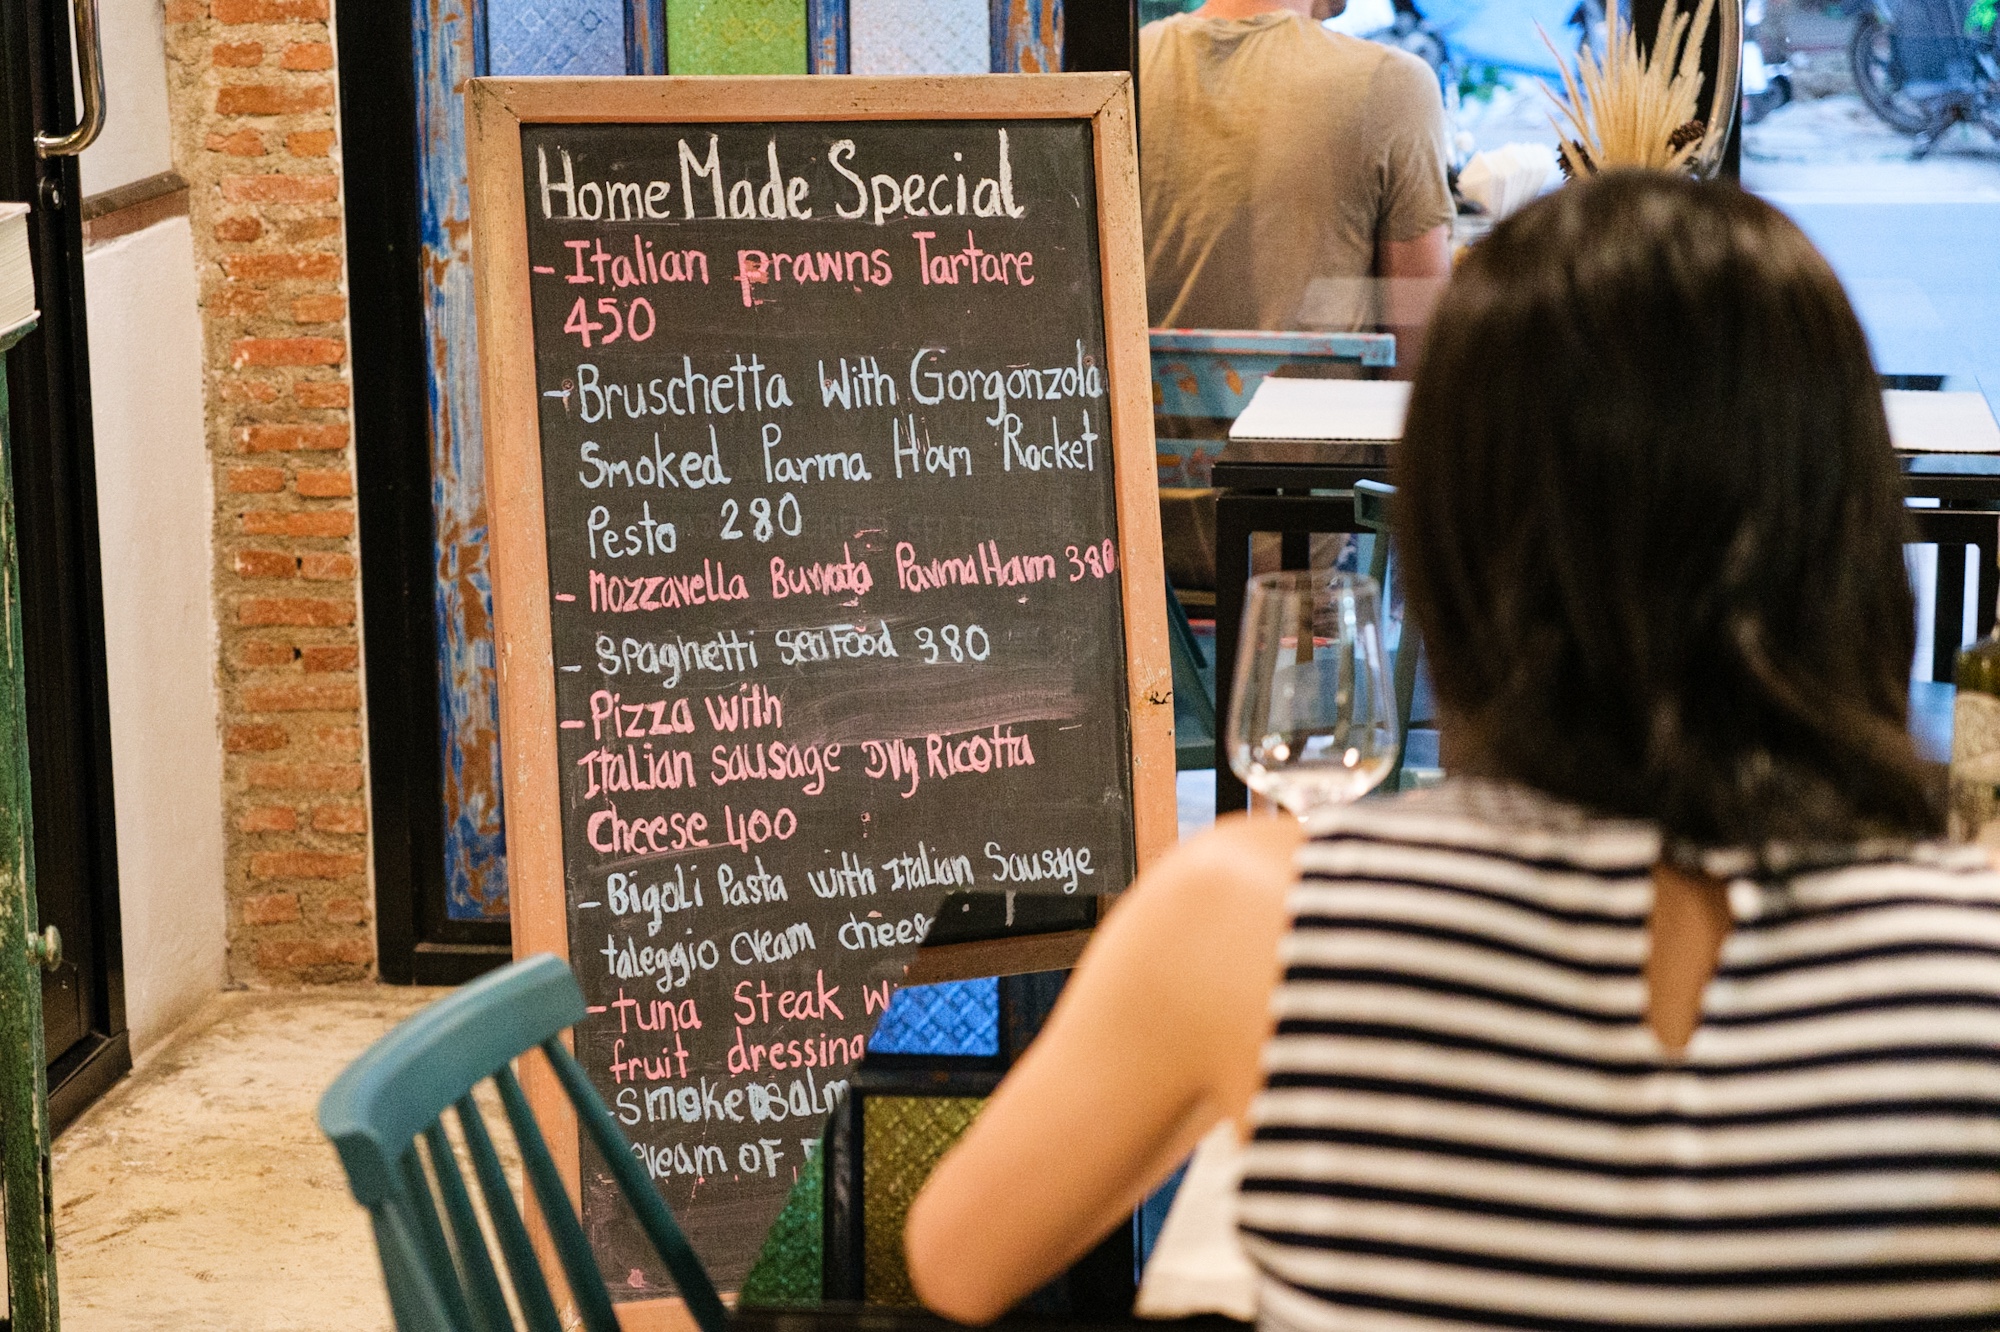 Home Made Special
- Italian prawns Tartare
450
- Bruschetta With Gorgonzola
Smoked Parma Ham Rocket
Pesto 280
- Mozzarella Burrata Parma Ham 380
- Spaghetti SeaFood 380
- Pizza with
Italian sausage Dry Ricotta
Cheese 400
- Bigoli Pasta with Italian Sausage
taleggio cream chees
- tuna Steak wi
fruit dressing
- smoked salm
cream of